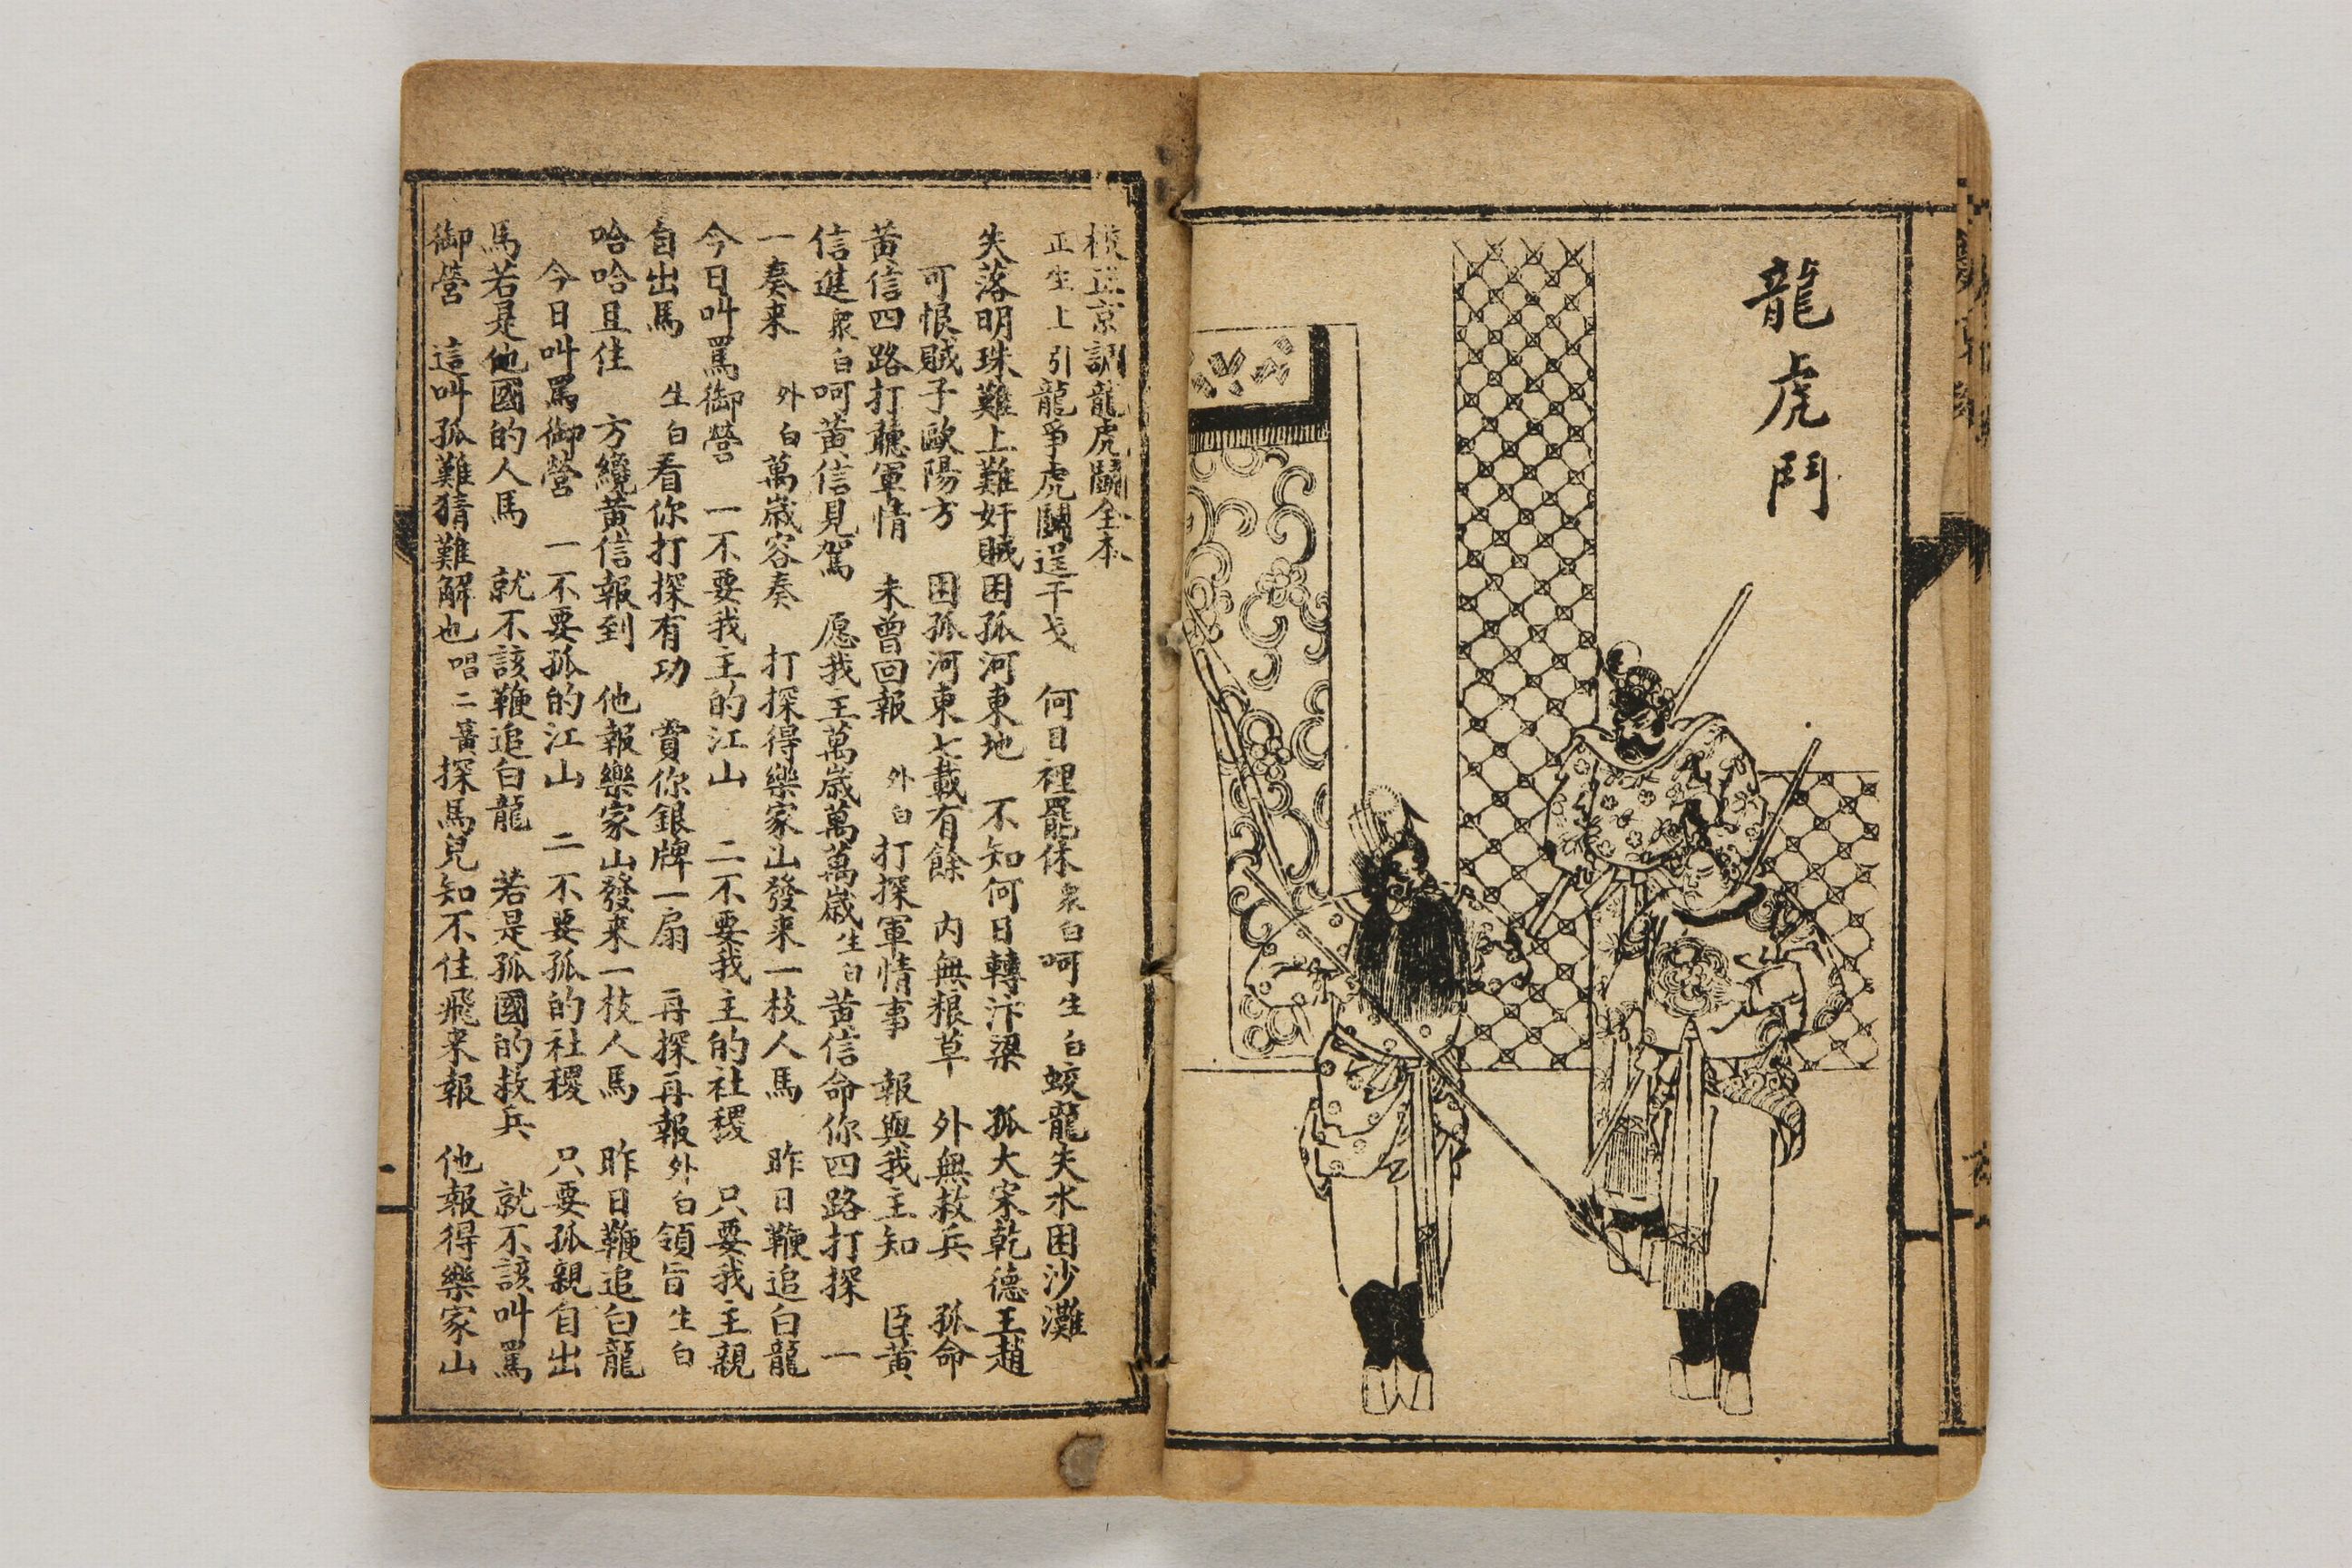 龍虎鬥
校正京調龍虎鬭全本
正生上引龍爭虎鬭逞干戈　何日裡罷休衆白呵生白蛟龍失水困沙灘
失落明珠難上難奸賊困孤河東地　不知何日轉汴梁　孤大宋乾德王趙
可恨賊子歐陽方　困孤河東七載有餘　內無粮草　外無救兵　孤命
黄信四路打聽軍情　未曾回報　外白打探軍情事　報與我主知　臣黄
信進衆白呵黄信見駕　愿我主萬歲萬萬歲生白黄信命你四路打探　一
一奏来　外白萬歲容奏　打探得樂家山發来一枝人馬　昨日鞭追白龍
今日叫罵御營　一不要我主的江山　二不要我主的社稷　只要我主親
自出馬　生白看你打探有功　賞你銀牌一扇　再探再報外白領旨生白
哈哈且住　方纔黄信報到　他報樂家山發来一枝人馬　昨日鞭追白龍
今日叫罵御營　一不要孤的江山　二不要孤的社稷　只要孤親自出
馬若是他國的人馬　就不該鞭追白龍　若是孤國的救兵　就不該叫罵
御營　這叫孤難猜難解也唱二簧探馬兒知不住飛来報　他報得樂家山